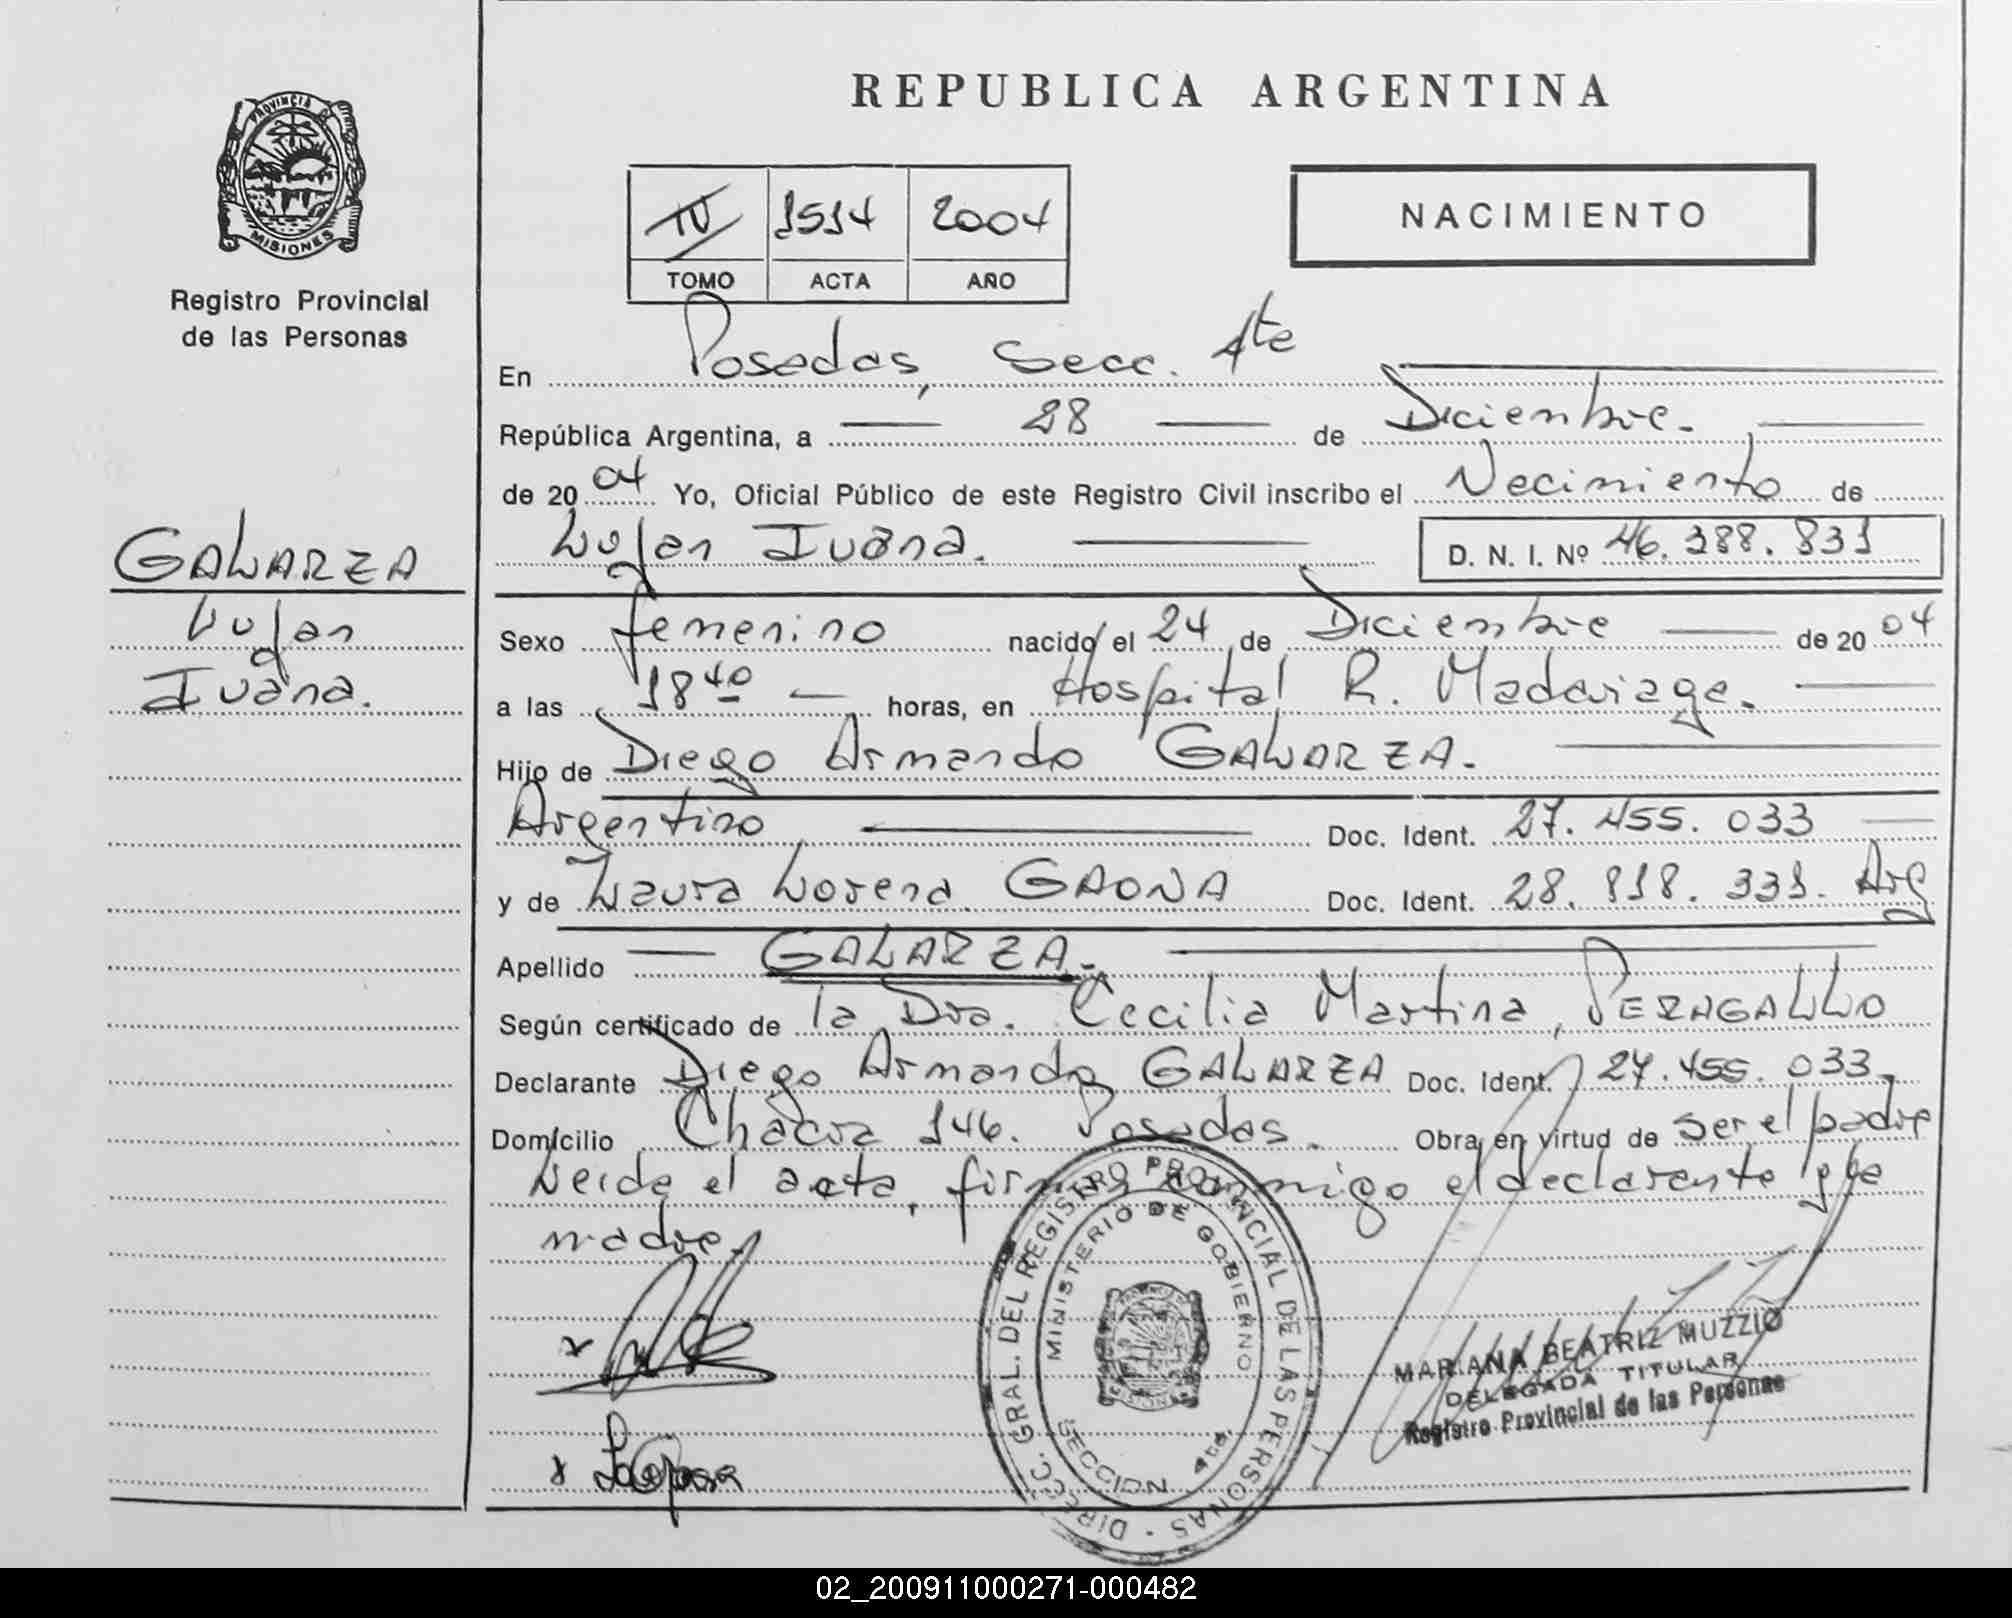 REPUBLICA ARGENTINA
PROVINCIA DE
MISIONES
Registro Provincial
de las Personas
IV 1514 2004
TOMO ACTA AÑO
NACIMIENTO
En Posadas, Secc. 4ta
República Argentina, a 28 de Diciembre.
de 2004 Yo, Oficial Público de este Registro Civil inscribo el Nacimiento de
Lujan Ivana. D. N. I. Nº 46.388.831
GALARZA
Lujan
Ivana.
Sexo femenino nacido el 24 de Diciembre de 2004
a las 18 40 horas, en Hospital R. Madariaga.
Hijo de Diego Armando GALARZA.
Argentino Doc. Ident. 27.455.033
y de Laura Lorena GAONA Doc. Ident. 28.818.331. Arg
Apellido GALARZA.
Según certificado de la Dra. Cecilia Martina, PERAGALLO
Declarante Diego Armando GALARZA Doc. Ident. 27.455.033,
Domicilio Chacra 146. Posadas. Obra en virtud de ser el padre
Leida el acta, firman conmigo el declarante y la
madre.
DIRECC. GRAL. DEL REGISTRO PROVINCIAL DE LAS PERSONAS
MINISTERIO DE GOBIERNO
SECCION 4ta.
MARIANA BEATRIZ MUZZIO
DELEGADA TITULAR
Registro Provincial de las Personas
02_200911000271-000482